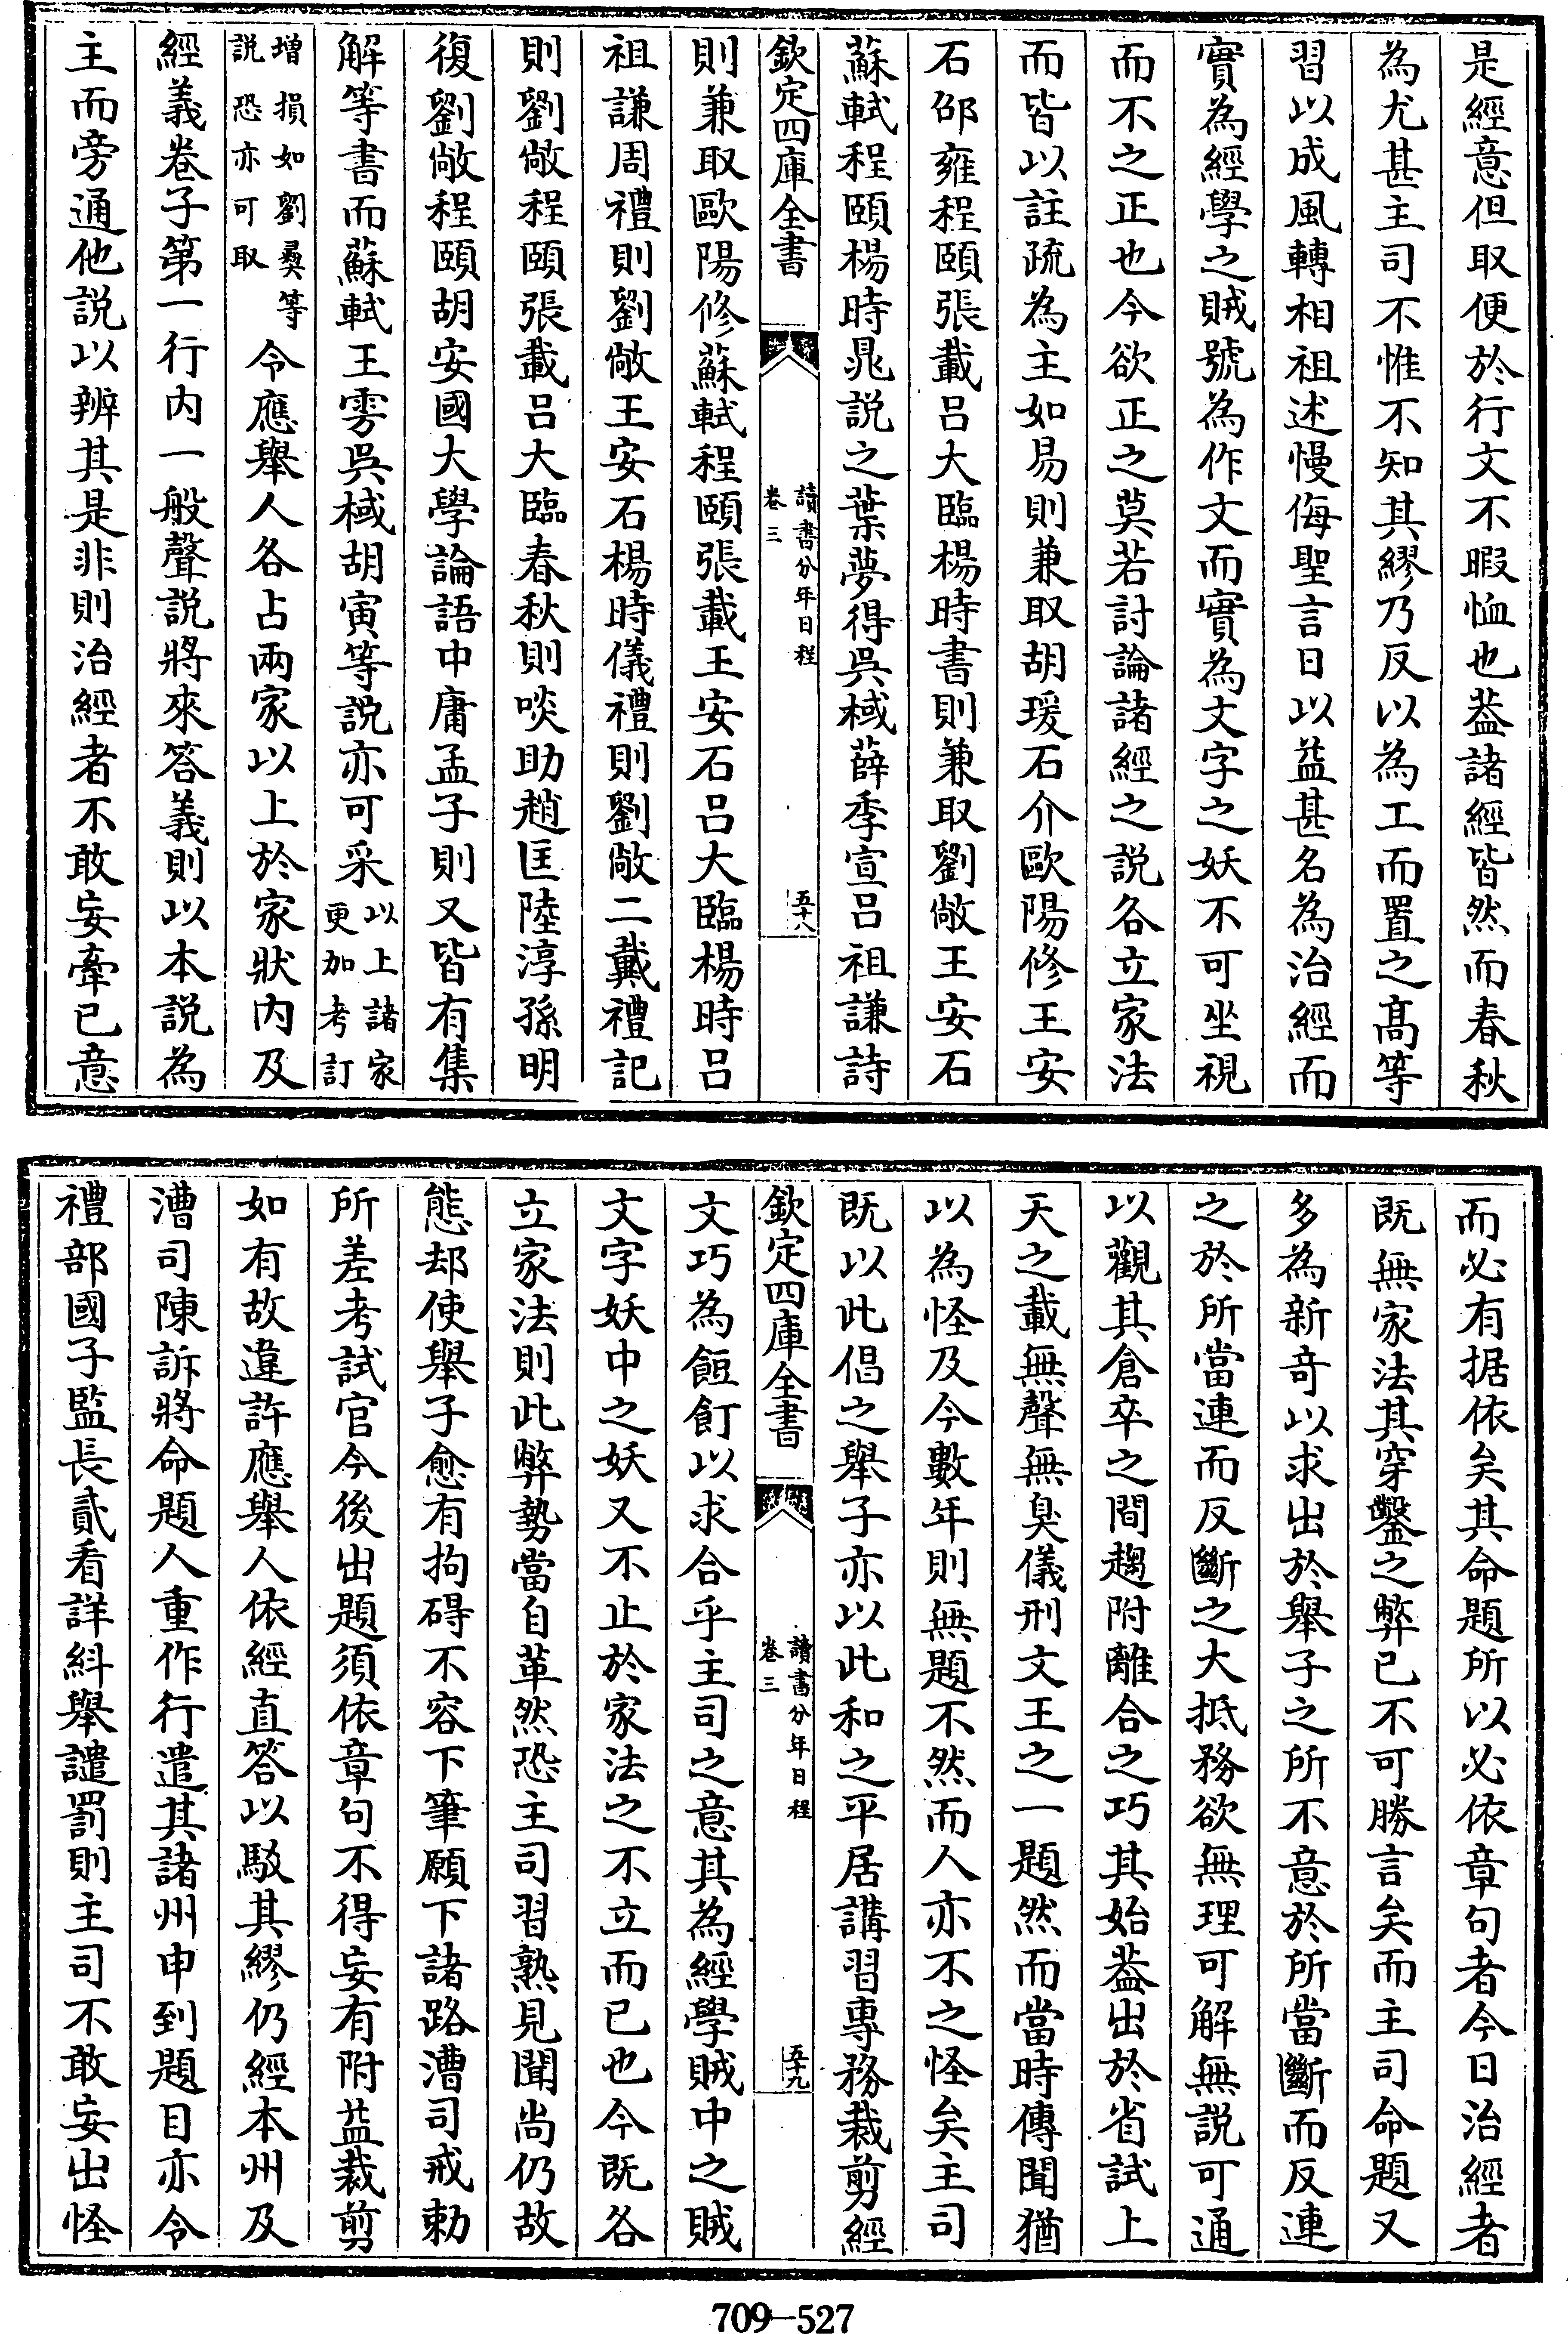 是經意但取便於行文不暇恤也葢諸經皆然而春秋
為尤甚主司不惟不知其繆乃反以為工而置之髙等
習以成風轉相祖述慢侮聖言日以益甚名為治經而
實為經學之賊號為作文而實為文字之妖不可坐視
而不之正也今欲正之莫若討論諸經之説各立家法
而皆以註疏為主如易則兼取胡瑗石介歐陽修王安
石邵雍程頤張載吕大臨楊時書則兼取劉敞王安石
蘇軾程頤楊時晁説之葉夢得吳棫薛季宣吕祖謙詩
欽定四庫全書
讀書分年日程
卷三
五十八
則兼取歐陽修蘇軾程頤張載王安石吕大臨楊時吕
祖謙周禮則劉敞王安石楊時儀禮則劉敞二戴禮記
則劉敞程頤張載吕大臨春秋則啖助趙匡陸淳孫明
復劉敞程頤胡安國大學論語中庸孟子則又皆有集
解等書而蘇軾王雱吳棫胡寅等説亦可采以上諸家
更加考訂
增損如劉彝等
説恐亦可取令應舉人各占兩家以上於家狀内及
經義卷子第一行内一般聲説將來答義則以本説為
主而旁通他説以辨其是非則治經者不敢妄牽已意
而必有据依矣其命題所以必依章句者今日治經者
既無家法其穿鑿之弊已不可勝言矣而主司命題又
多為新奇以求出於舉子之所不意於所當斷而反連
之於所當連而反斷之大抵務欲無理可解無説可通
以觀其倉卒之間趨附離合之巧其始葢出於省試上
天之載無聲無臭儀刑文王之一題然而當時傳聞猶
以為怪及今數年則無題不然而人亦不之怪矣主司
既以此倡之舉子亦以此和之平居講習專務裁剪經
欽定四庫全書
讀書分年日程
卷三
五十九
文巧為餖飣以求合乎主司之意其為經學賊中之賊
文字妖中之妖又不止於家法之不立而已也今既各
立家法則此弊勢當自革然恐主司習熟見聞尚仍故
態却使舉子愈有拘碍不容下筆願下諸路漕司戒勅
所差考試官今後出題須依章句不得妄有附益裁剪
如有故違許應舉人依經直答以駮其繆仍經本州及
漕司陳訴將命題人重作行遣其諸州申到題目亦令
禮部國子監長貳看詳糾舉譴罰則主司不敢妄出怪
709—527